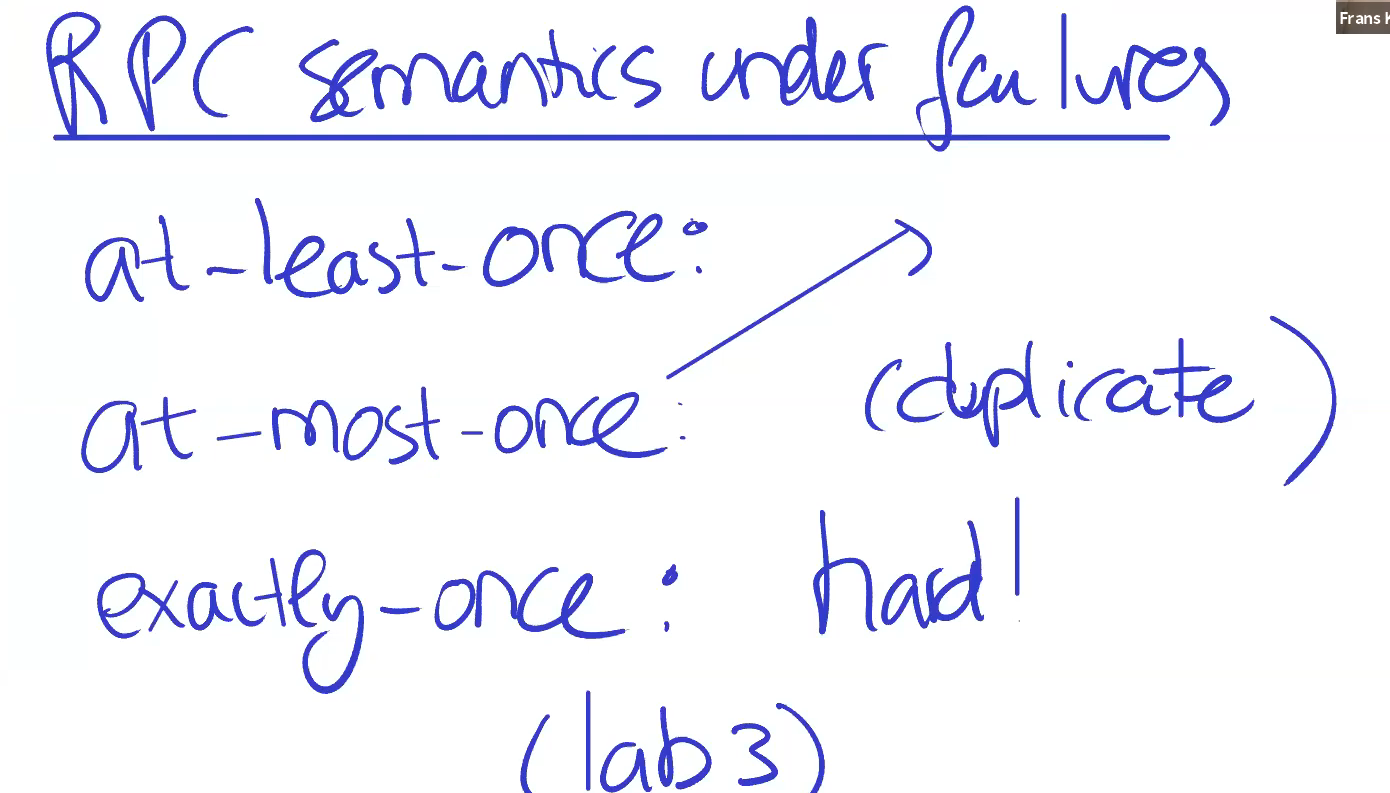 Frans K
RPC semantics under failures
at-least-once:
at-most-once:
(duplicate)
exactly-once: hard!
(lab 3)